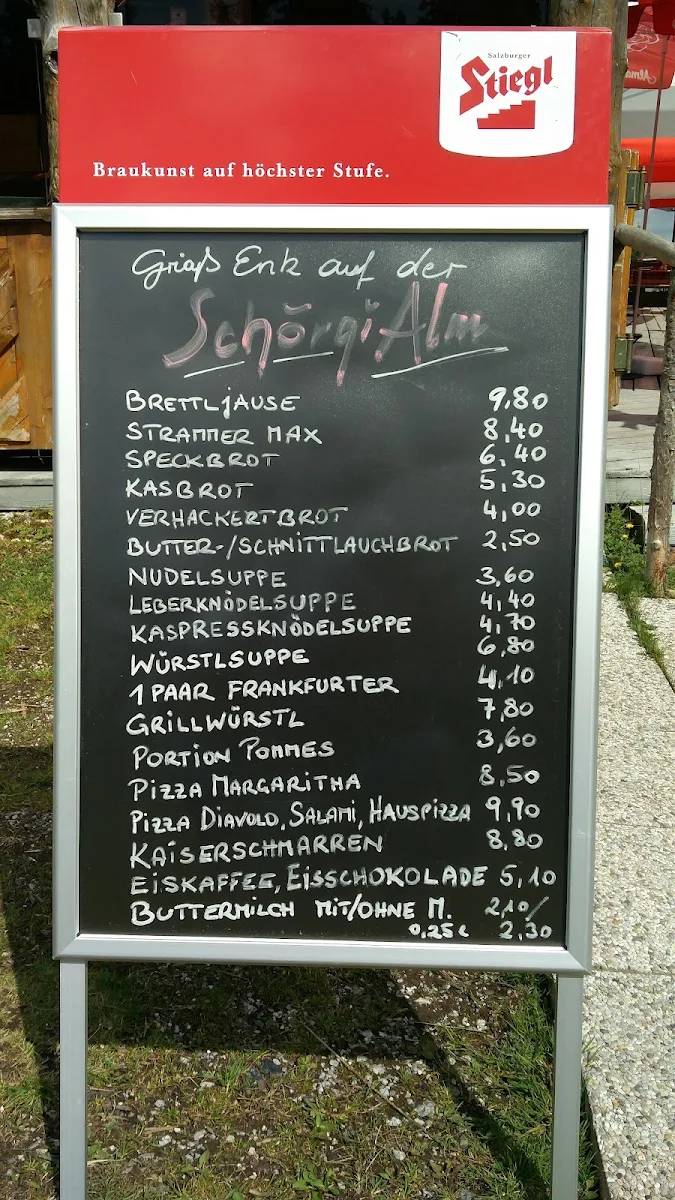 Salzburger
Stiegl
Braukunst auf höchster Stufe.
Griaß Enk auf der
Schörgi Alm
BRETTLJAUSE 9,80
STRAMMER MAX 8,40
SPECKBROT 6,40
KASBROT 5,30
VERHACKERTBROT 4,00
BUTTER-/SCHNITTLAUCHBROT 2,50
NUDELSUPPE 3,60
LEBERKNÖDELSUPPE 4,40
KASPRESSKNÖDELSUPPE 4,70
WÜRSTLSUPPE 6,80
1 PAAR FRANKFURTER 4,10
GRILLWÜRSTL 7,80
PORTION POMMES 3,60
PIZZA MARGARITHA 8,50
PIZZA DIAVOLO, SALAMI, HAUSPIZZA 9,90
KAISERSCHMARREN 8,80
EISKAFFEE, EISSCHOKOLADE 5,10
BUTTERMILCH MIT/OHNE M. 2,10/
0,25L 2,30